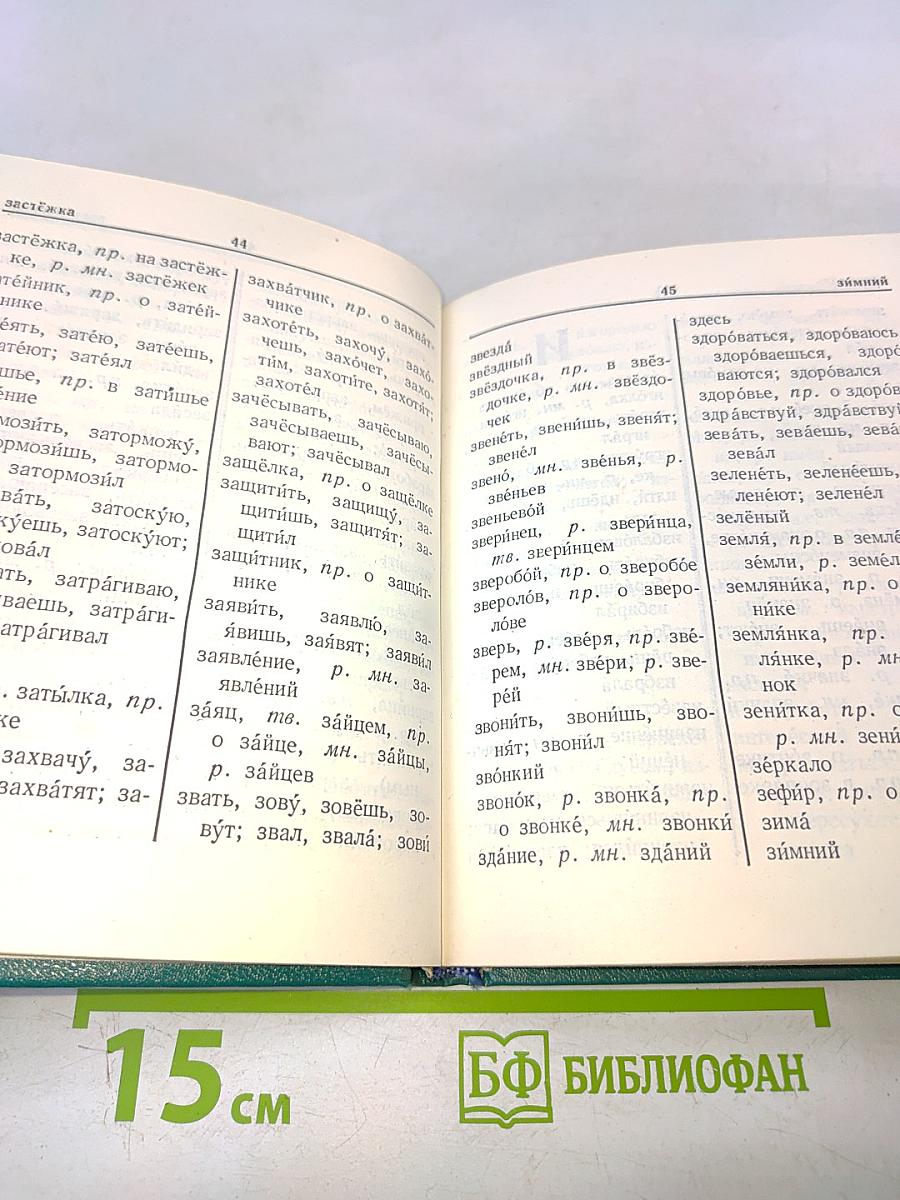 застёжка
44
застёжка, пр. на застёж-
ке, р. мн. застёжек
затéйник, пр. о затéй-
нике
затéю, затéешь,
затéял
пр. в зати́шье
заторможу́,
затормо-
затормози́л
затоску́ю,
затоску́ют;
затрáгиваю,
затрáги-
заты́лка, пр.
захвачу́, за-
захвáтят; за-
захвáтчик, пр. о захвáт-
чике
захотéть, захочу́, захó-
чешь, захóчет, захо-
ти́м, захоти́те, захотя́т;
захотéл
зачёсывать, зачёсываю,
зачёсываешь, зачёсы-
вают; зачёсывал
защёлка, пр. о защёлке
защити́ть, защищу́, за-
щити́шь, защитя́т; за-
щити́л
защи́тник, пр. о защи́т-
нике
заяви́ть, заявлю́, за-
я́вишь, зая́вят; заяви́л
заявлéние, р. мн. за-
явлéний
зáяц, тв. зáйцем, пр.
о зáйце, мн. зáйцы,
р. зáйцев
звать, зову́, зовёшь, зо-
ву́т; звал, звалá; зови́
45
зи́мний
звездá
звёздный
звёздочка, пр. в звёз-
дочке, р. мн. звёздо-
чек
звенéть, звени́шь, звеня́т;
звенéл
звенó, мн. звéнья, р.
звéньев
звеньевóй
звери́нец, р. звери́нца,
тв. звери́нцем
зверобóй, пр. о зверобóе
зверолóв, пр. о зверо-
лóве
зверь, р. звéря, пр. звé-
рем, мн. звéри; р. зве-
рéй
звони́ть, звони́шь, зво-
ня́т; звони́л
звóнкий
звонóк, р. звонкá, пр.
о звонкé, мн. звонки́
здáние, р. мн. здáний
здесь
здорóваться, здорóваюсь
здорóваешься, здорó
ваются; здорóвался
здорóвье, пр. о здорóв
здрáвствуй, здрáвствуй
зевáть, зевáешь, зевá
зевáл
зеленéть, зеленéешь,
ленéют; зеленéл
зелёный
земля́, пр. в землé
зéмли, р. земéл
земляни́ка, пр. о
ни́ке
земля́нка, пр.
ля́нке, р. мн
нок
зени́тка, пр. о
р. мн. зени́
зéркало
зефи́р, пр. о
зимá
зи́мний
15 см
БФ БИБЛИОФАН